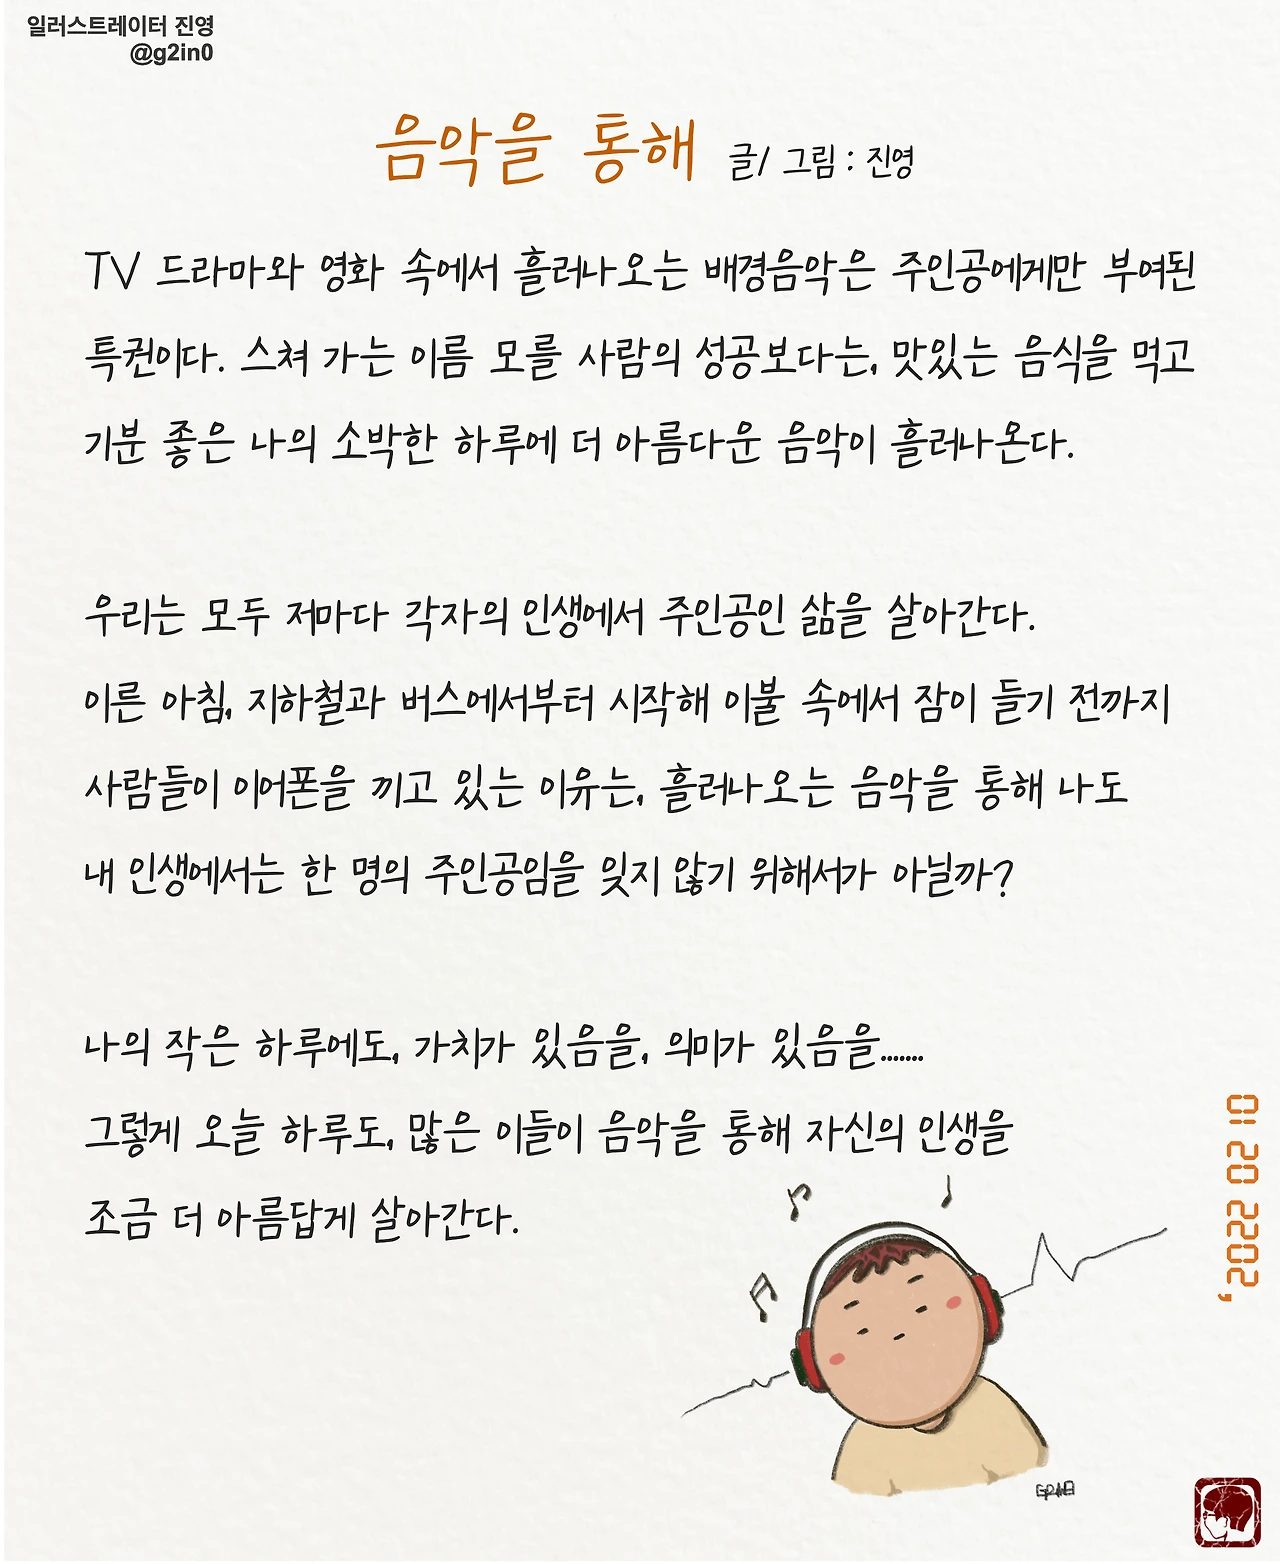 일러스트레이터 진영
@g2in0
음악을 통해 글/ 그림 : 진영
TV 드라마와 영화 속에서 흘러나오는 배경음악은 주인공에게만 부여된
특권이다. 스쳐 가는 이름 모를 사람의 성공보다는, 맛있는 음식을 먹고
기분 좋은 나의 소박한 하루에 더 아름다운 음악이 흘러나온다.
우리는 모두 저마다 각자의 인생에서 주인공인 삶을 살아간다.
이른 아침, 지하철과 버스에서부터 시작해 이불 속에서 잠이 들기 전까지
사람들이 이어폰을 끼고 있는 이유는, 흘러나오는 음악을 통해 나도
내 인생에서는 한 명의 주인공임을 잊지 않기 위해서가 아닐까?
나의 작은 하루에도, 가치가 있음을, 의미가 있음을.......
그렇게 오늘 하루도, 많은 이들이 음악을 통해 자신의 인생을
조금 더 아름답게 살아간다.
01 20 2202,